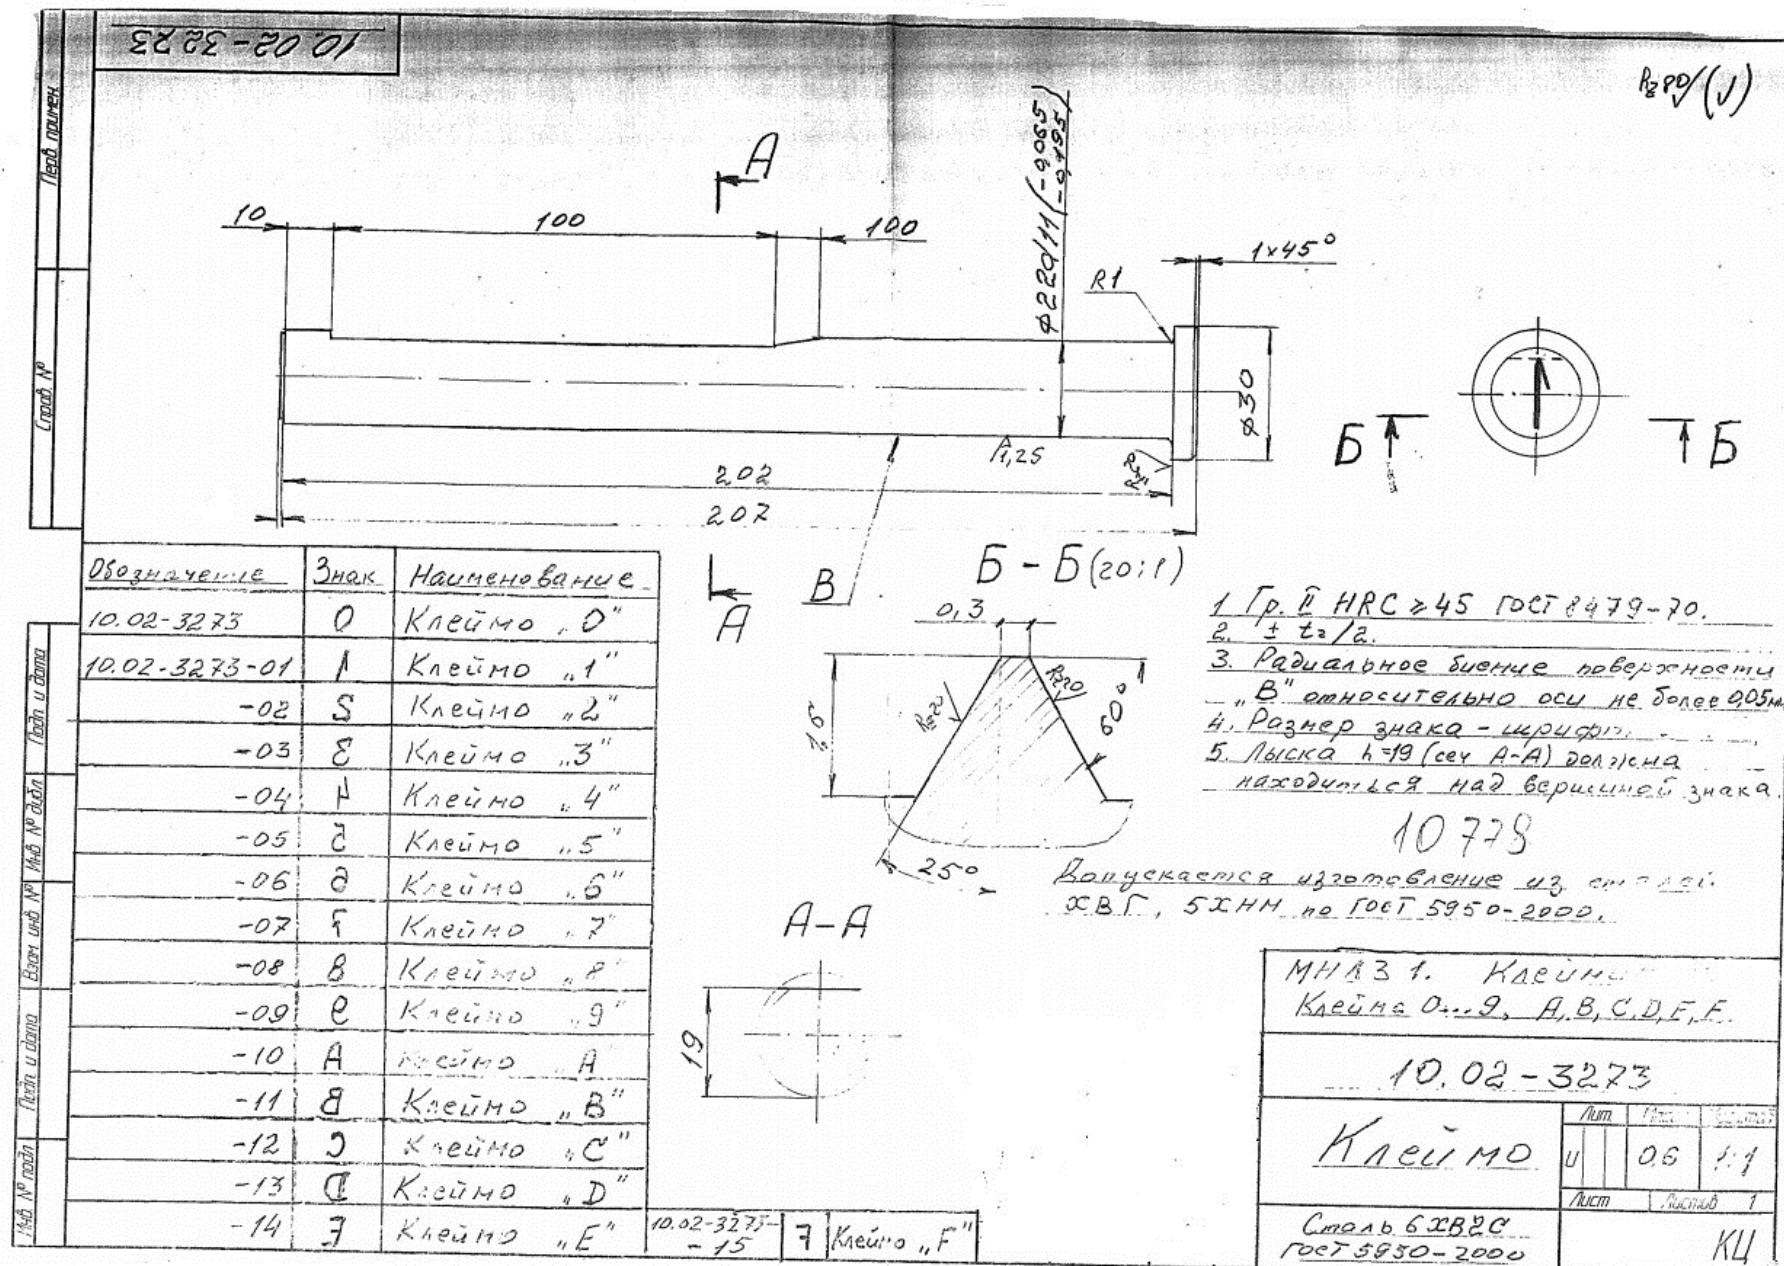 10.02-3273
Перв. примен.
Справ. №
Подп. и дата
Инв. № дубл.
Взам. инв. №
Подп. и дата
Инв. № подл.
Rz 80/(√)
А
10
100
100
⌀22d11(-0,065
-0,195)
R1
1×45°
⌀30
1,25
202
207
В
А
Б
Б
Б - Б (20:1)
0,3
Rz20
Rz20
60°
25°
А-А
19
Обозначение Знак Наименование
10.02-3273 0 Клеймо „0"
10.02-3273-01 1 Клеймо „1"
-02 2 Клеймо „2"
-03 3 Клеймо „3"
-04 4 Клеймо „4"
-05 5 Клеймо „5"
-06 6 Клеймо „6"
-07 7 Клеймо „7"
-08 8 Клеймо „8"
-09 9 Клеймо „9"
-10 A Клеймо „A"
-11 B Клеймо „B"
-12 C Клеймо „C"
-13 D Клеймо „D"
-14 E Клеймо „E"
10.02-3273-
-15 F Клеймо „F"
1 Гр. II HRC ≥ 45 ГОСТ 8479-70.
2. ± t2/2.
3. Радиальное биение поверхности
„В" относительно оси не более 0,05мм
4. Размер знака - шрифт
5. Лыска h=19 (сеч А-А) должна
находиться над вершиной знака.
10778
Допускается изготовление из сталей
ХВГ, 5ХНМ по ГОСТ 5950-2000.
МНЛЗ 1. Клейма
Клейма 0...9, A, B, C, D, E, F.
10.02-3273
Клеймо
Лит.
И 0,6 1:1
Лист Листов 1
Сталь 6ХВ2С
ГОСТ 5950-2000
КЦ